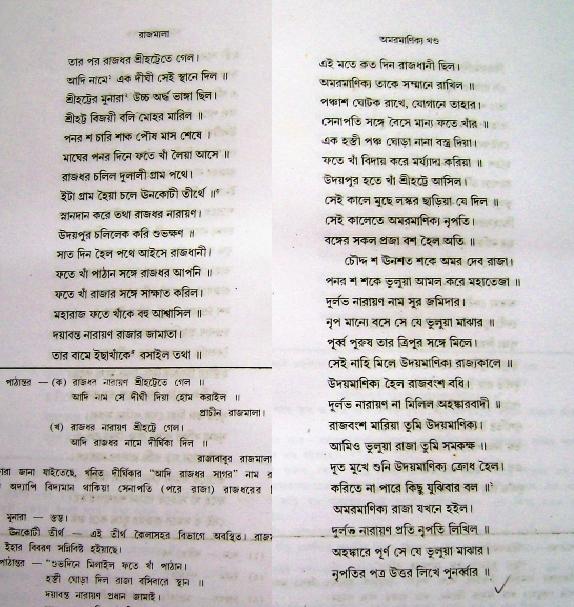 রাজমালা
তার পর রাজধর শ্রীহট্টেতে গেল।
আদি নামে১ এক দীঘী সেই স্থানে দিল ॥
শ্রীহট্টের মুনারা২ উচ্চ অর্দ্ধ ভাঙ্গা ছিল।
শ্রীহট্ট বিজয়ী বলি মোহর মারিল ॥
পনর শ চারি শাক পৌষ মাস শেষে।
মাঘের পনর দিনে ফতে খাঁ লৈয়া আসে ॥
রাজধর চলিল দুলালী গ্রাম পথে।
ইটা গ্রাম হৈয়া চলে ঊনকোটী তীর্থে ॥৩
স্নানদান করে তথা রাজধর নারায়ণ।
উদয়পুর চলিলেক করি শুভক্ষণ ॥
সাত দিন হৈল পথে আইসে রাজধানী।
ফতে খাঁ পাঠান সঙ্গে রাজধর আপনি ॥
ফতে খাঁ রাজার সঙ্গে সাক্ষাত করিল।
মহারাজ ফতে খাঁকে বহু আশ্বাসিল ॥
দয়াবন্ত নারায়ণ রাজার জামাতা।
তার বামে ইছাখাঁকে৪ বসাইল তথা ॥
পাঠান্তর — (ক) রাজধর নারায়ণ শ্রীহট্টেতে গেল ॥
আদি নাম সে দীঘী দিয়া হোম করাইল ॥
প্রাচীন রাজমালা।
(খ) রাজধর নারায়ণ শ্রীহট্টে গেল।
আদি রাজধর নামে দীর্ঘিকা দিল ॥
রাজাবাবুর রাজমালা
জানা যাইতেছে, খনিত দীর্ঘিকার "আদি রাজধর সাগর" নাম
অদ্যাপি বিদ্যমান থাকিয়া সেনাপতি (পরে রাজা) রাজধরের
মুনারা — স্তম্ভ।
ঊনকোটী তীর্থ — এই তীর্থ কৈলাসহর বিভাগে অবস্থিত।
ইহার বিবরণ সন্নিবিষ্ট হইয়াছে।
পাঠান্তর — "শুভদিনে মিলাইল ফতে খাঁ পাঠান।
হস্তী ঘোড়া দিল রাজা বসিবারে স্থান ॥
দয়াবন্ত নারায়ণ প্রধান জামাই।
অমরমাণিক্য খণ্ড
এই মতে কত দিন রাজধানী ছিল।
অমরমাণিক্য তাকে সম্মানে রাখিল ॥
পঞ্চাশ ঘোটক রাখে, যোগানে তাহার।
সেনাপতি সঙ্গে বৈসে মান্য ফতে খাঁর ॥
এক হস্তী পঞ্চ ঘোড়া নানা বস্ত্র দিয়া।
ফতে খাঁ বিদায় করে মর্য্যাদা করিয়া ॥
উদয়পুর হতে খাঁ শ্রীহট্টে আসিল।
সেই কালে মুছে লস্কর ছাড়িয়া যে দিল ॥
সেই কালেতে অমরমাণিক্য নৃপতি।
বঙ্গের সকল প্রজা বশ হৈল অতি ॥
চৌদ্দ শ ঊনশত শকে অমর দেব রাজা।
পনর শ শকে ভুলুয়া আমল করে মহাতেজা ॥
দুর্লভ নারায়ণ নাম সুর জমিদার।
নৃপ মান্যে বসে সে যে ভুলুয়া মাঝার ॥
পূর্ব্ব পুরুষ তার ত্রিপুর সঙ্গে মিলে।
সেই নাহি মিলে উদয়মাণিক্য রাজাকালে ॥
উদয়মাণিক্য হৈল রাজবংশ বধি।
দুর্লভ নারায়ণ না মিলিল অহঙ্কারবাদী ॥
রাজবংশ মারিয়া তুমি উদয়মাণিক্য।
আমিও ভুলুয়া রাজা তুমি সমকক্ষ ॥
দূত মুখে শুনি উদয়মাণিক্য ক্রোধ হৈল।
করিতে না পারে কিছু যুঝিবার বল ॥১
অমরমাণিক্য রাজা যখনে হইল।
দুর্লভ নারায়ণ প্রতি নৃপতি লিখিল ॥
অহঙ্কারে পূর্ণ সে যে ভুলুয়া মাঝার।
নৃপতির পত্র উত্তর লিখে পুনর্ব্বার ॥